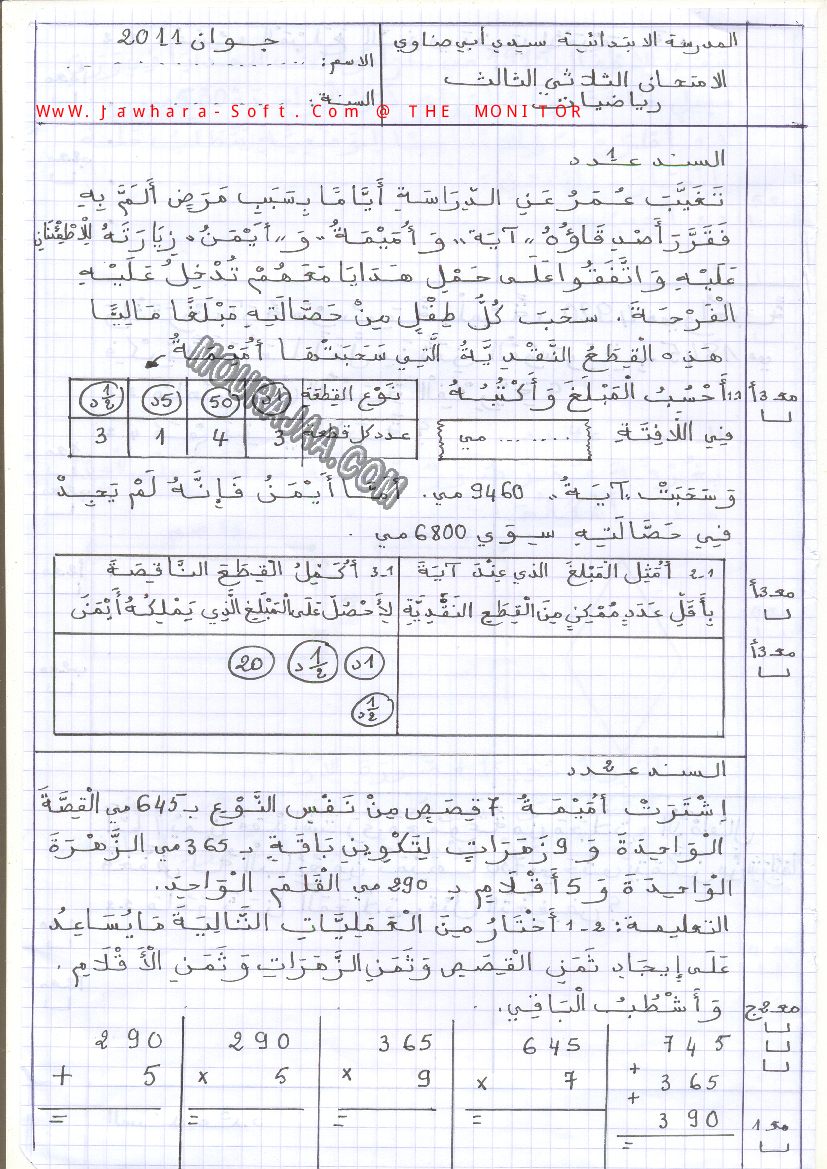 المدرسة الابتدائية سيدي أبي صناوي
الامتحان الثلاثي الثالث
رياضيات
جوان 2011
الاسم: ....................
السنة: ....................
WwW. Jawhara-Soft.Com @ THE MONITOR
السند عـ1ـدد
تَغَيَّبَ عُمَرُ عَنِ الدِّرَاسَةِ أَيَّامًا بِسَبَبِ مَرَضٍ أَلَمَّ بِهِ
فَقَرَّرَ أَصْدِقَاؤُهُ "آيَة" وَ "أُمَيْمَةُ" وَ "أَيْمَنُ" زِيَارَتَهُ لِلْاطْمِئْنَانِ
عَلَيْهِ وَ اتَّفَقُوا عَلَى حَمْلِ هَدَايَا مَعَهُمْ تُدْخِلُ عَلَيْهِ
الْفَرْحَةَ. سَحَبَ كُلُّ طِفْلٍ مِنْ حَصَّالَتِهِ مَبْلَغًا مَالِيًّا
هَذِهِ الْقِطَعُ النَّقْدِيَّةُ الَّتِي سَحَبَتْهَا أُمَيْمَةُ
مع3أ
1.1 أَحْسُبُ الْمَبْلَغَ وَ أَكْتُبُهُ
فِي اللَّافِتَةِ ....... مي
نَوْعُ القِطْعَة 1د 50 5د 1/2د
عدد كل قطعة 3 4 1 3
MOUWAJAA.COM
وَ سَحَبَتْ "آيَةُ" 9460 مي. أَمَّا أَيْمَنُ فَإِنَّهُ لَمْ يَجِدْ
فِي حَصَّالَتِهِ سِوَى 6800 مي.
مع3أ
مع3أ
2.1 أُمَثِّلُ الْمَبْلَغَ الذي عِنْدَ آيَةَ
بِأَقَلِّ عَدَدٍ مُمْكِنٍ مِنَ الْقِطَعِ النَّقْدِيَّةِ
3.1 أُكَمِّلُ الْقِطَعَ النَّاقِصَةَ
لِأَحْصُلَ عَلَى الْمَبْلَغِ الَّذِي يَمْلِكُهُ أَيْمَنَ
1د 1/2د 20
1/2د
السند عـ2ـدد
اِشْتَرَتْ أُمَيْمَةُ 7 قِصَصٍ مِنْ نَفْسِ النَّوْعِ بـ 645 مي الْقِصَّةَ
الْوَاحِدَةَ وَ 9 زَهَرَاتٍ لِتَكْوِينِ بَاقَةٍ بـ 365 مي الزَّهْرَةَ
الْوَاحِدَةَ وَ 5 أَقْلَامٍ بـ 290 مي الْقَلَمَ الْوَاحِدَ.
التعليمة: 2-1 أَخْتَارُ مِنَ الْعَمَلِيَّاتِ التَّالِيَةَ مَا يُسَاعِدُ
عَلَى إِيجَادِ ثَمَنِ الْقِصَصِ وَ ثَمَنِ الزَّهَرَاتِ وَ ثَمَنِ الْأَقْلَامِ.
وَ أَشْطُبُ الْبَاقِي.
مع2ج
مع1
745 + 365 + 390 =
645 x 7 =
365 x 9 =
290 x 5 =
290 + 5 =